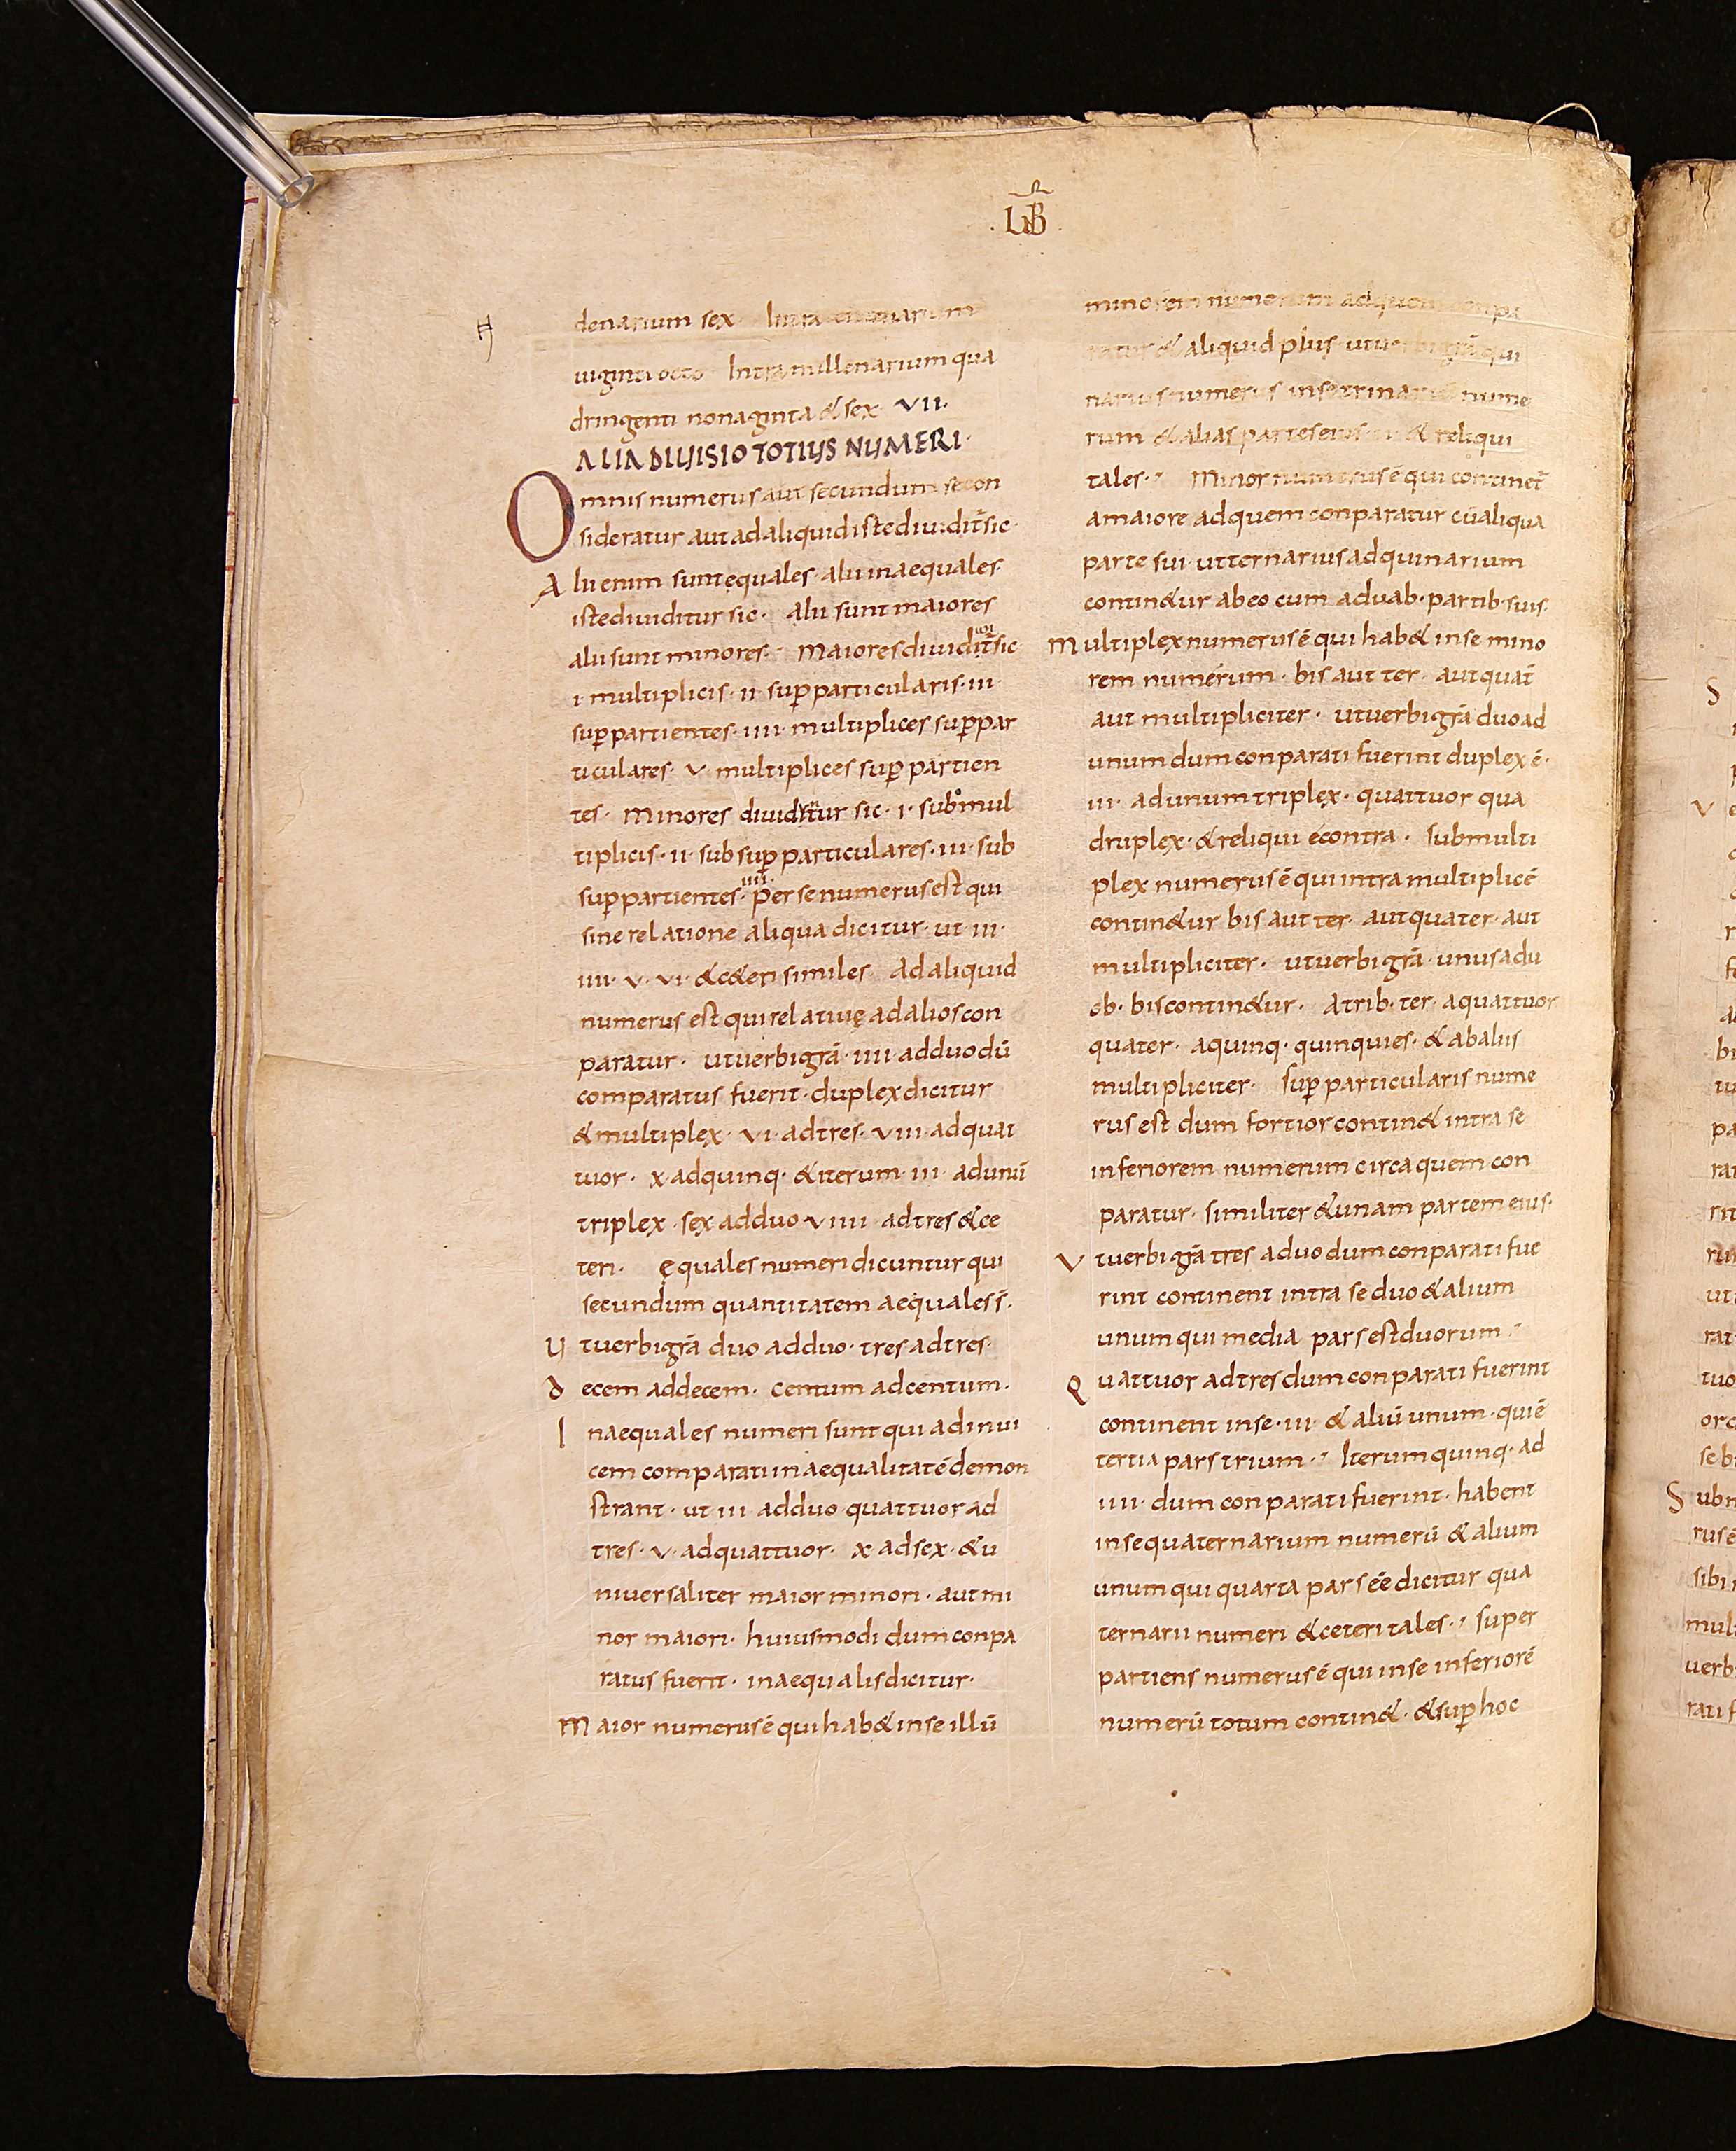 LIB̃
denarium sex Intra centenarium
uiginti octo Intra millenarium qua
dringenti nonaginta & sex VII·
ALIA DIUISIO TOTIUS NUMERI·
Omnis numerus aut secundum se con
sideratur aut ad aliquid iste diuidit̃ sic·
Alii enim sunt equales· alii inaequales·
iste diuiditur sic· alii sunt maiores
alii sunt minores· Maiores diuidit̃ sic
·i· multiplicis· ii· sup̱particularis· iii·
sup̱partientes· iiii· multiplices sup̱par
ticulares· v· multiplices sup̱partien
tes· Minores diuiduntur sic· i· submul
tiplicis· ii· subsup̱particulares· iii· sub
sup̱partientes· iiii· Per se numerus est qui
sine relatione aliqua dicitur· ut· iii·
iiii· v· vi· &c&eri similes· Ad aliquid
numerus est qui relatiuę ad alios con
paratur· ut uerbi grā· iiii· ad duo dū
comparatus fuerit· duplex dicitur
& multiplex· vi· ad tres· viii· ad quat
tuor· x· ad quinq· & iterum· iii· ad unū
triplex· sex ad duo viiii· ad tres & ce
teri· ęquales numeri dicuntur qui
secundum quantitatem aequales s̄·
Ut uerbi grā duo ad duo· tres ad tres·
decem ad decem· centum ad centum·
Inaequales numeri sunt qui ad inui
cem comparati inaequalitatē demon
strant· ut iii· ad duo quattuor ad
tres· v· ad quattuor· x ad sex· & u
niuersaliter maior minori· aut mi
nor maiori· huiusmodi dum conpa
ratus fuerit· inaequalis dicitur·
Maior numerus ē qui hab& in se illū
minorem numerum ad quem conpa
ratur & aliquid plus· ut uerbi grā qui
narius numerus in se trinariū nume
rum & alias partes eius· ii· & reliqui
tales· Minor numerus ē qui continet̃
a maiore ad quem conparatur cū aliqua
parte sui· ut ternarius ad quinarium
contin&ur ab eo cum a duab· partib· suis·
Multiplex numerus ē qui hab& in se mino
rem numerum· bis aut ter· aut quat̄
aut multipliciter· ut uerbi grā duo ad
unum dum conparati fuerint duplex ē·
iii· ad unum triplex· quattuor qua
druplex· & reliqui econtra· submulti
plex numerus ē qui intra multiplicē
contin&ur bis aut ter· aut quater· aut
multipliciter· ut uerbi grā· unus a du
ob· bis contin&ur· a trib· ter· a quattuor
quater· a quinq· quinquies· & ab aliis
multipliciter· sup̱particularis nume
rus est dum fortior contin& intra se
inferiorem numerum circa quem con
paratur· similiter & unam partem eius·
Ut uerbi grā tres a duo dum conparati fue
rint continent intra se duo & alium
unum qui media pars est duorum·
Quattuor ad tres dum conparati fuerint
continent in se· iii· & aliū unum· qui ē
tertia pars trium· Iterum quinq· ad
iiii· dum conparati fuerint· habent
in se quaternarium numerū & alium
unum qui quarta pars ēē dicitur qua
ternarii numeri & ceteri tales· super
partiens numerus ē qui in se inferiorē
numerū totum contin&· & sup̱ hoc